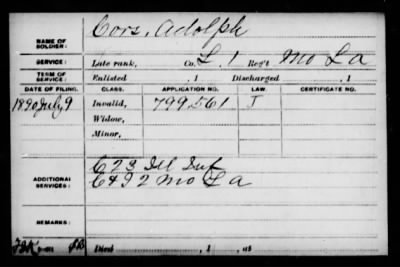 NAME OF SOLDIER: Cors, Adolph
SERVICE: Late rank, Co. L, 1 Reg't Mo L a
TERM OF SERVICE: Enlisted , 1 Discharged , 1
DATE OF FILING. CLASS. APPLICATION NO. LAW. CERTIFICATE NO.
1890 July 9 Invalid, 799.561 J
Widow,
Minor,
C 23 Ill Inf
ADDITIONAL SERVICES: C & 9 2 Mo L a
REMARKS:
Died , 1 , at